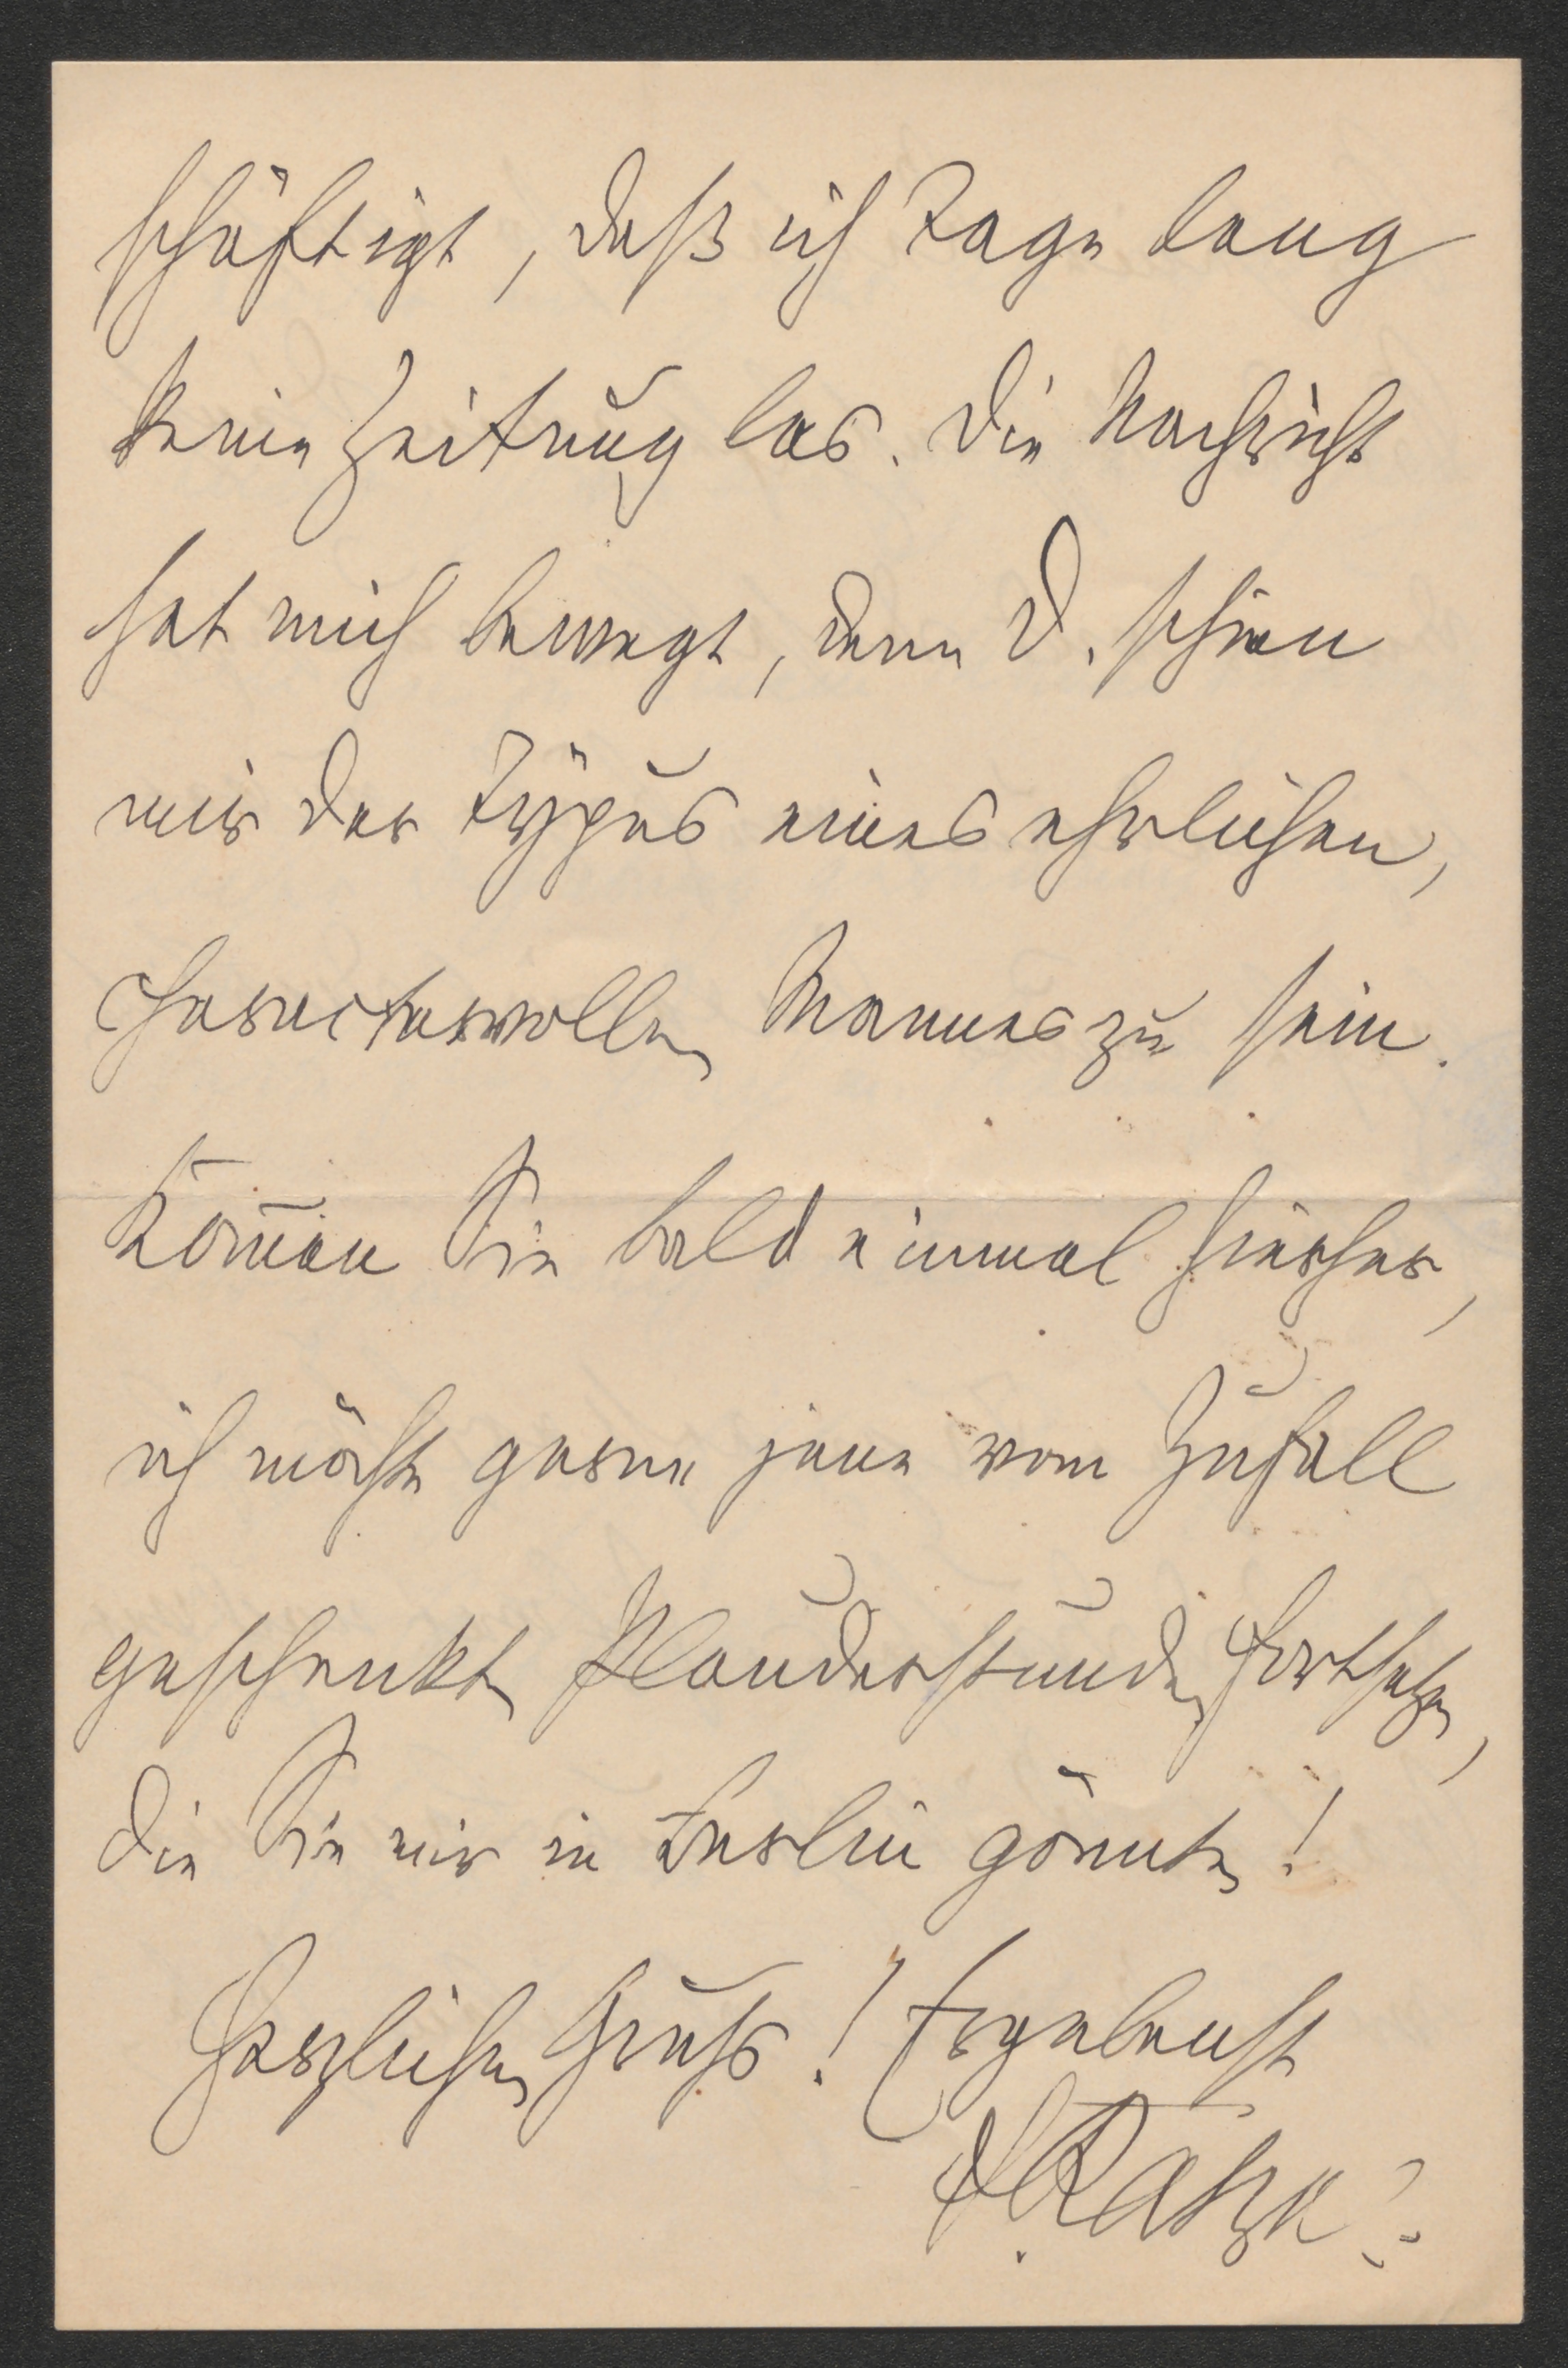 schäftigt, daß ich Tage lang
keine Zeitung las. Die Nachricht
hat mich bewegt, denn D. schien
mir der Typus eines ehrlichen,
charactervollen Mannes zu sein.
Kom̅en Sie bald einmal hierher,
ich möchte gerne jene vom Zufall
geschenkten Plauderstunden fortsetzen,
die Sie mir in Berlin gönnten!
Herzlichen Gruß! Ergebenst